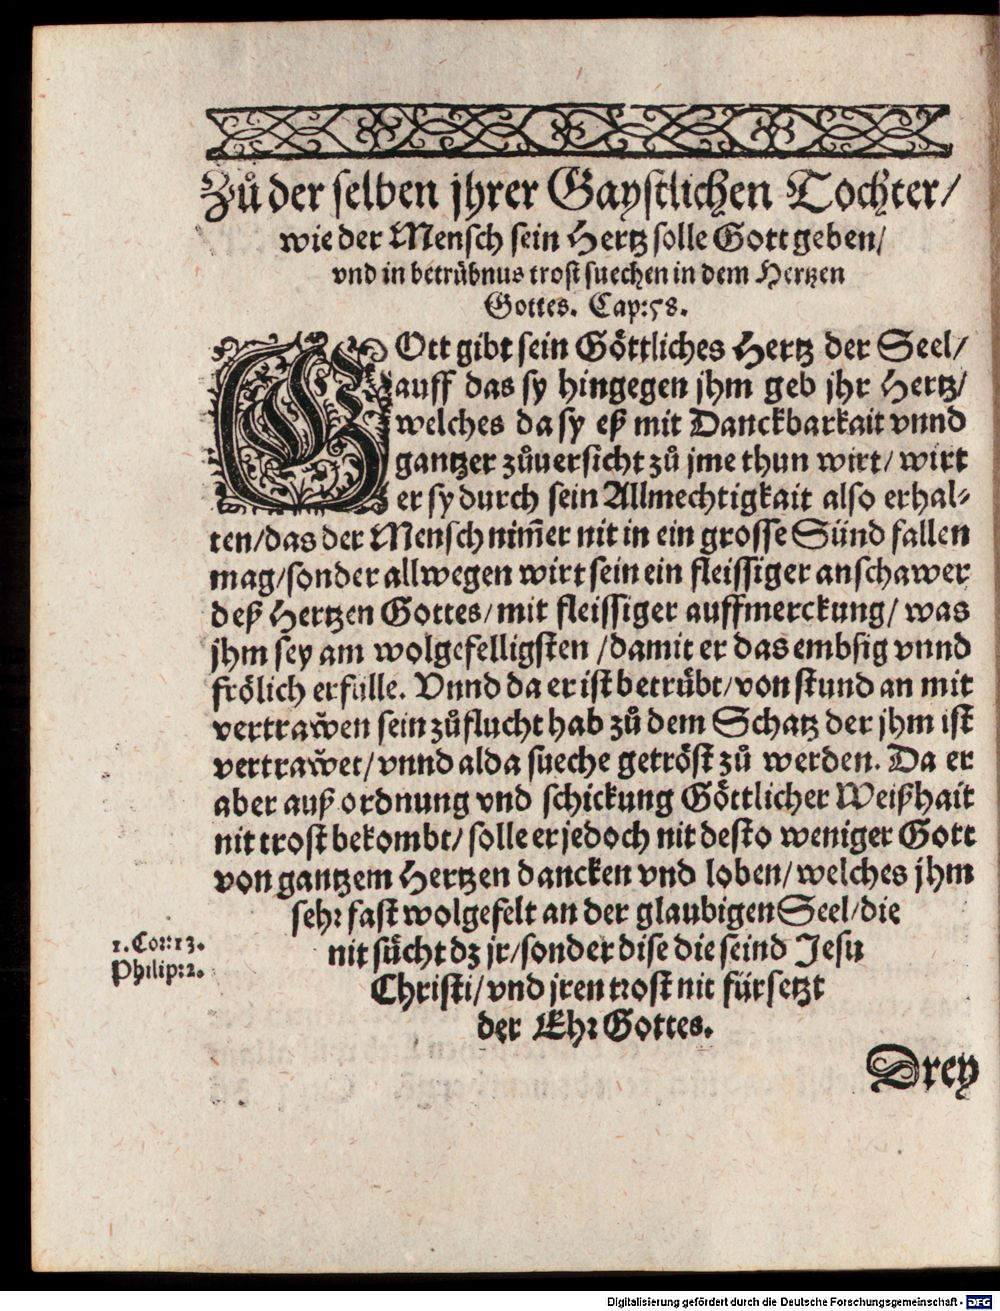 Zů der selben jhrer Gaystlichen Tochter/
wie der Mensch sein Hertz solle Gott geben/
vnd in betrübnus trost suechen in dem Hertzen
Gottes. Cap:58.
GOtt gibt sein Göttliches Hertz der Seel/
auff das sy hingegen jhm geb jhr Hertz/
welches da sy eß mit Danckbarkait vnnd
gantzer zůuersicht zů jme thun wirt/ wirt
er sy durch sein Allmechtigkait also erhal-
ten/das der Mensch nim̃er nit in ein grosse Sünd fallen
mag/sonder allwegen wirt sein ein fleissiger anschawer
deß Hertzen Gottes/mit fleissiger auffmerckung/ was
jhm sey am wolgefelligsten /damit er das embsig vnnd
frölich erfülle. Vnnd da er ist betrübt/von stund an mit
vertraw̆en sein zůflucht hab zů dem Schatz der jhm ist
vertraw̆et/vnnd alda sueche getröst zů werden. Da er
aber auß ordnung vnd schickung Göttlicher Weißhait
nit trost bekombt/solle er jedoch nit desto weniger Gott
von gantzem Hertzen dancken vnd loben/welches jhm
sehr fast wolgefelt an der glaubigen Seel/die
nit sücht dz jr/sonder dise die seind Jesu
1.Cor:13.
Philip:2.
Christi/vnd jren trost nit fürsetzt
der Ehr Gottes.
Drey
Digitalisierung gefördert durch die Deutsche Forschungsgemeinschaft - DFG